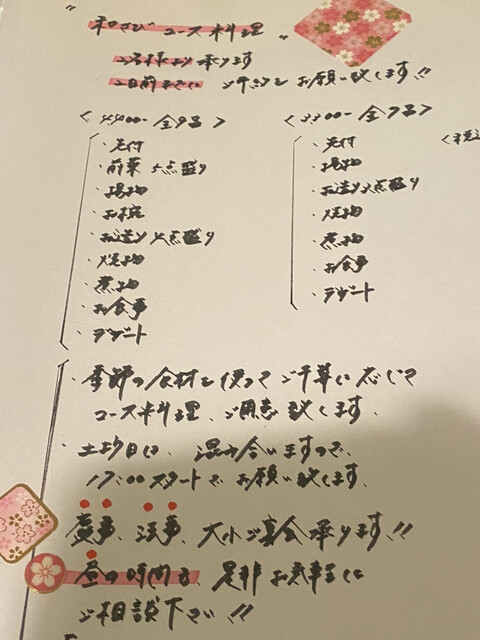 "和さび コース料理"
2名様より承ります
2日前までに ご予約をお願い致します!!
<4400- 全9品>
・先付
・前菜 5点盛り
・揚物
・お椀
・お造り 4点盛り
・焼物
・煮物
・お食事
・デザート
<3300- 全7品>
・先付
・揚物
・お造り 3点盛り
・焼物
・煮物
・お食事
・デザート
<税込
・季節の食材を使ってご予算に応じて
コース料理、ご用意致します。
・土曜日は、混み合いますので、
17:00スタートでお願い致します。
慶事、法事、大小ご宴会承ります!!
昼の時間も、是非お気軽に
ご相談下さい!!